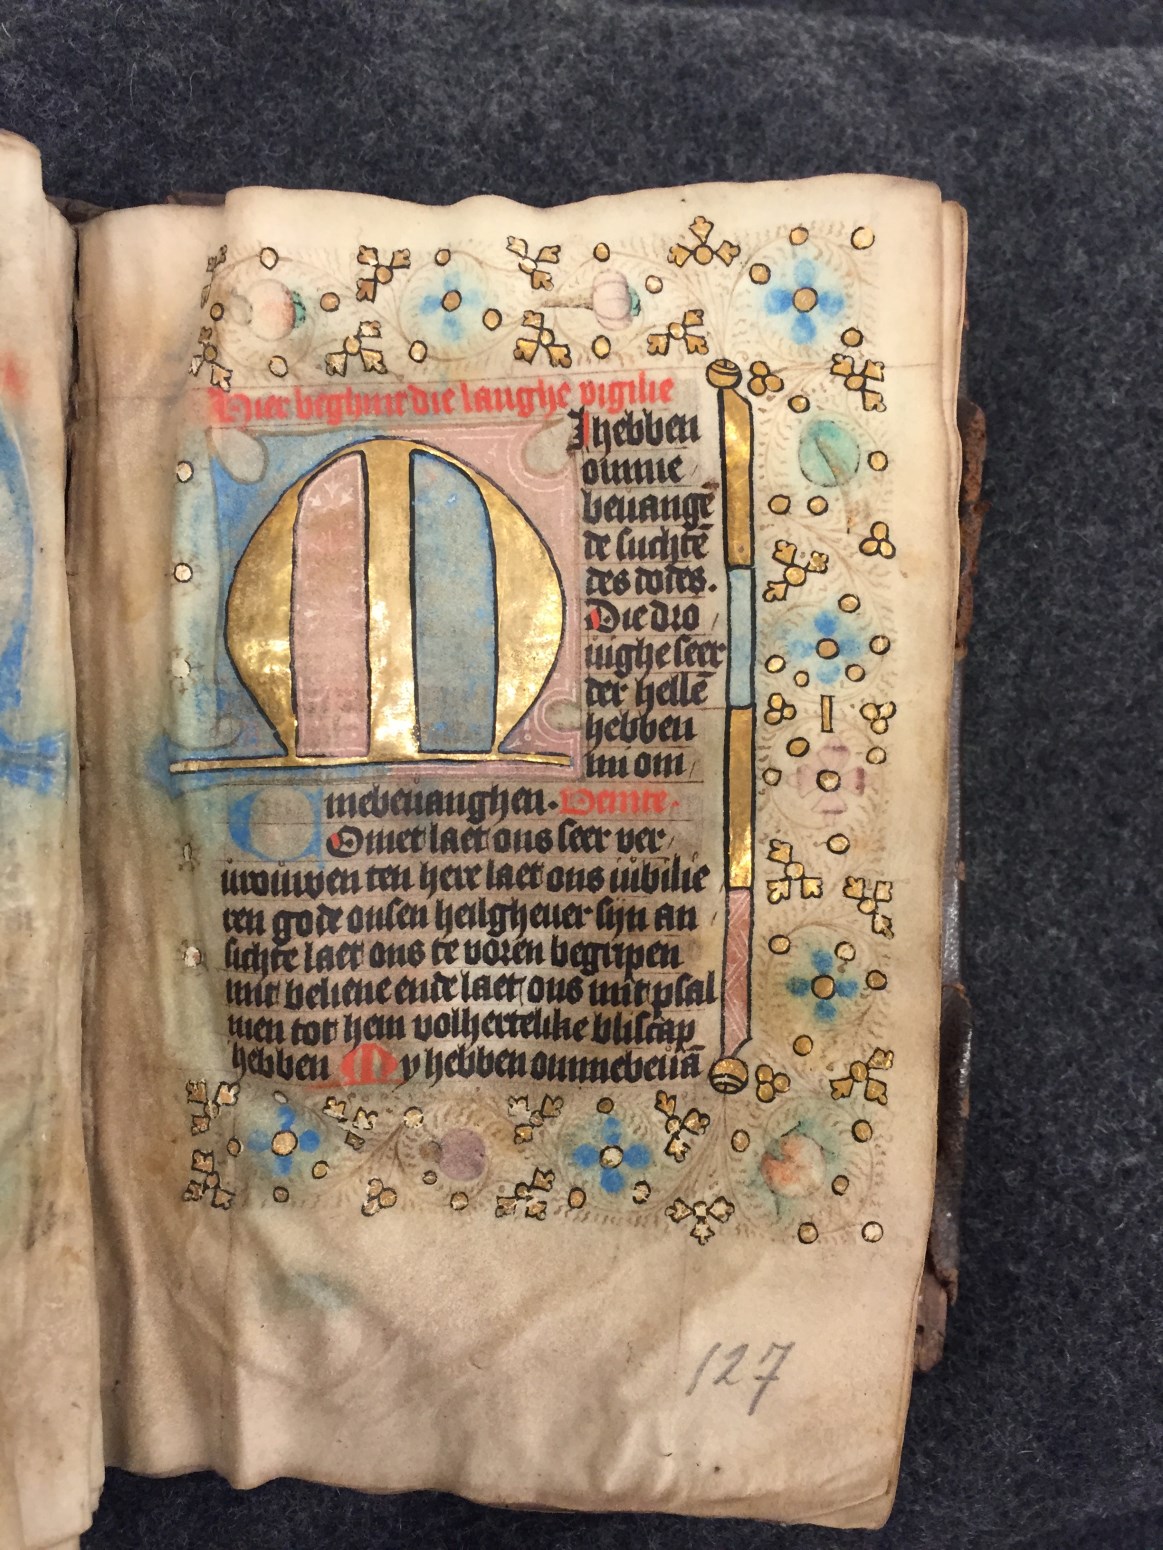 Hier beghint die langhe vigilie
M
I hebben
omme
bevangē
de suchtē
des dodes.
Die dro
vighe seer
der hellē
hebben
mi om
mebevanghen. Venite.
Comet laet ons seer ver
vrouwen ten here laet ons iubilie
ren gode onsen heilghever sijn an
sichte laet ons te voren begripen
mit beliene ende laet ons mit psal
men tot hem volhertelike bliscap
hebben My hebben ommebevā
127